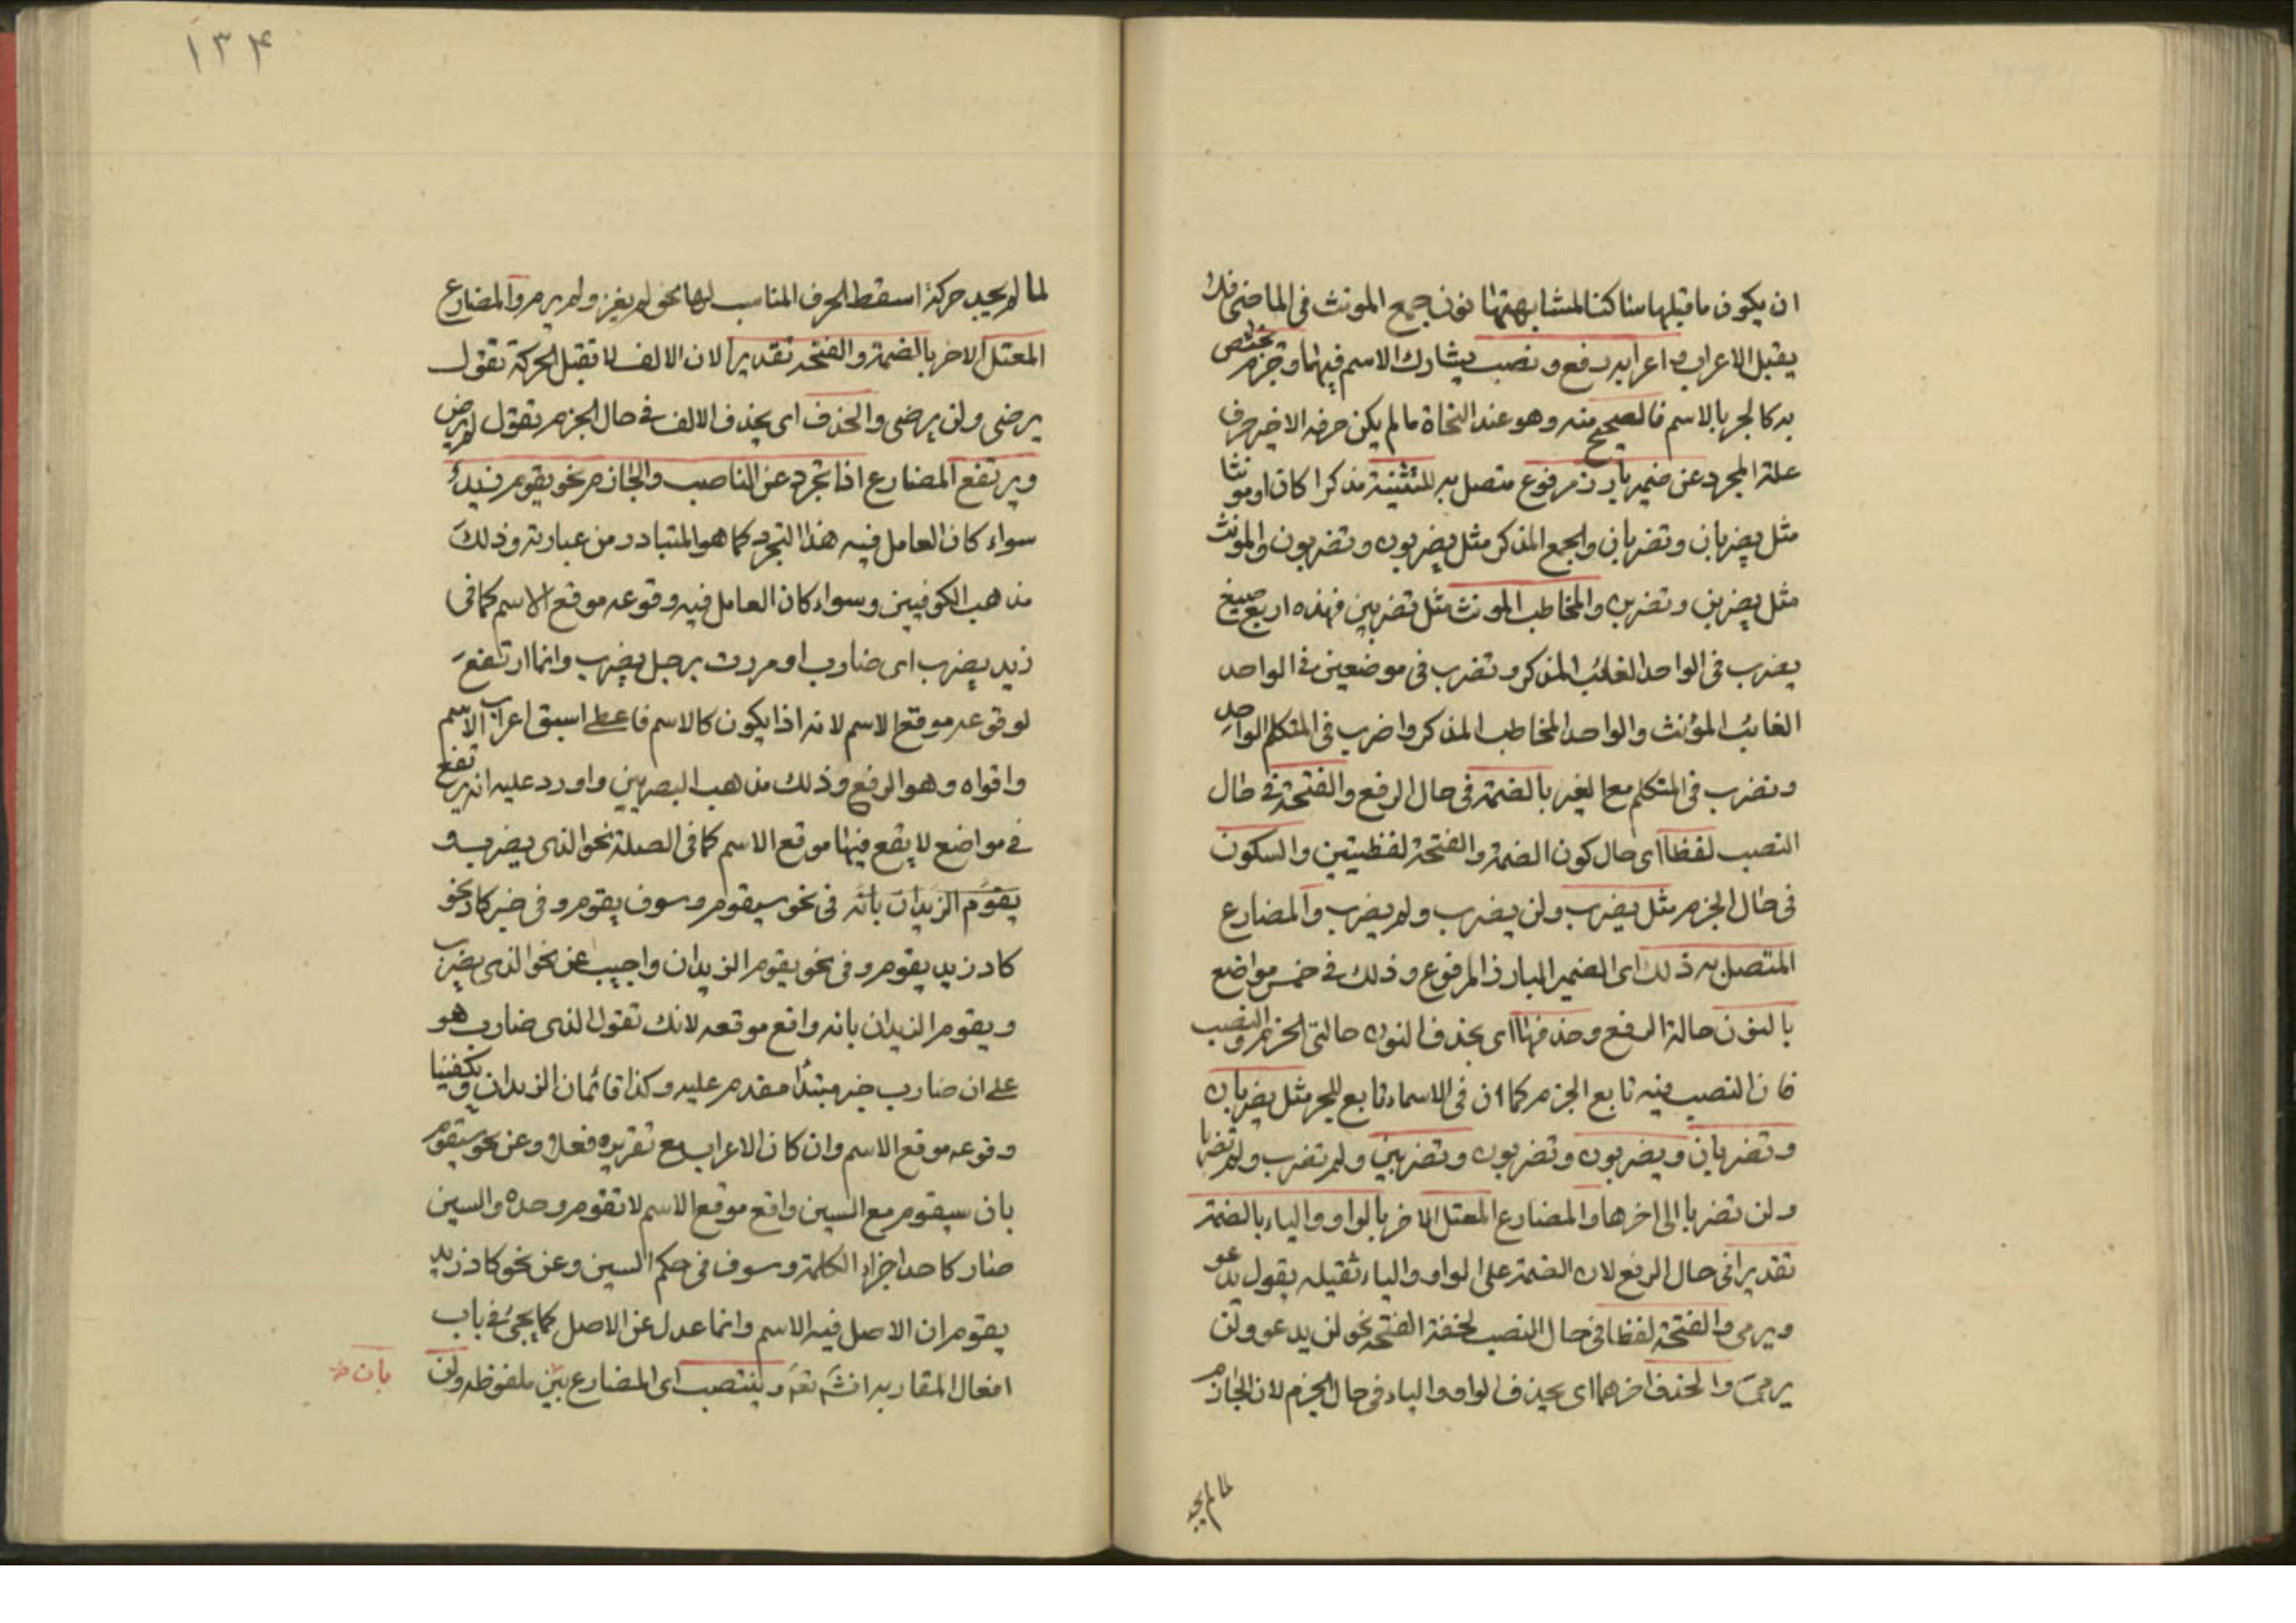 ان يكون ما قبلها ساكنا لمشابهتها نون جمع المونث فى الماضى فلا
يقبل الاعراب واعرابه رفع ونصب يشارك الاسم فيهما وجزم يختص
به كالجر بالاسم فالصحيح منه وهو عند النحاة ما لم يكن حرفه الاخير حرف
علة المجرد عن ضمير بارز مرفوع متصل به للتثنية مذكرا كان او مونثا
مثل يضربان وتضربان والجمع المذكر مثل يضربون وتضربون والمونث
مثل يضربن وتضربن والمخاطب المونث مثل تضربين فهذه اربع صيغ
يضرب فى الواحد الغائب المذكر وتضرب فى موضعين فى الواحد
الغائب المؤنث والواحد المخاطب المذكر واضرب فى المتكلم الواحد
ونضرب فى المتكلم مع الغير بالضمة فى حال الرفع والفتحة فى حال
النصب لفظا اى حال كون الضمة والفتحة لفظيتين والسكون
فى حال الجزم مثل يضرب ولن يضرب ولم يضرب والمضارع
المتصل به ذلك اى الضمير البارز المرفوع وذلك فى خمس مواضع
بالنون حالة الرفع وحذفها اى بحذف النون حالتى الجزم والنصب
فان النصب فيه تابع الجزم كما ان فى الاسماء تابع للجر مثل يضربان
وتضربان ويضربون وتضربون وتضربين ولم تضرب ولم تضربا
ولن تضربا الى اخرها والمضارع المعتل الاخر بالواو والياء بالضمة
تقديرا فى حال الرفع لان الضمة على الواو والياء ثقيله يقول يدعو
ويرمى والفتحة لفظا فى حال النصب لخفة الفتحة نحو لن يدعو ولن
يرمىَ والحذف اخرهما اى بحذف الواو والياء فى حال الجزم لان الجازم
لما لم يجد
١٣٤
لما لم يجد حركة اسقط الحرف المناسب لها نحو لم يغز ولم يرم والمضارع
المعتل الاخر بالضمة والفتحة تقديرا لان الالف لا تقبل الحركة تقول
يرضى ولن يرضى والحذف اى بحذف الالف فى حال الجزم تقول لم يرض
ويرتفع المضارع اذا تجرد عن الناصب والجازم نحو يقوم زيدٌ
سواء كان العامل فيه هذا التجرد كما هو المتبادر من عبارته وذلك
مذهب الكوفيين وسواء كان العامل فيه وقوعه موقع الاسم كما فى
زيد يضرب اى ضارب او مررت برجل يضرب وانما ارتفع
لوقوعه موقع الاسم لانه اذا يكون كالاسم فاعطى اسبق اعراب الاسم
واقواه وهو الرفع وذلك مذهب البصريين واورد عليه انه يرتفع
فى مواضع لا يقع فيها موقع الاسم كما فى الصلة نحو الذى يضرب و
يقوم الزيدان بانه فى نحو سيقوم وسوف يقوم وفى خبر كاد نحو
كاد زيد يقوم وفى نحو يقوم الزيدان واجيب عن نحو الذى يضرب
ويقوم الزيدان بانه واقع موقعه لانك تقول الذى ضارب هو
على ان ضارب خبر مبتدأ مقدم عليه وكذا قائمان الزيدان ويكفينا
وقوعه موقع الاسم وان كان الاعراب مع تقريره فعلا وعن نحو سيقوم
بان سيقوم مع السين واقع موقع الاسم لا تقوم وحده والسين
صار كاحد اجزاء الكلمة وسوف فى حكم السين وعن نحو كاد زيد
يقوم ان الاصل فيه الاسم وانما عدل عن الاصل كما يجئ فى باب
افعال المقاربه وينتصب اى المضارع ملفوظه ولن
بان